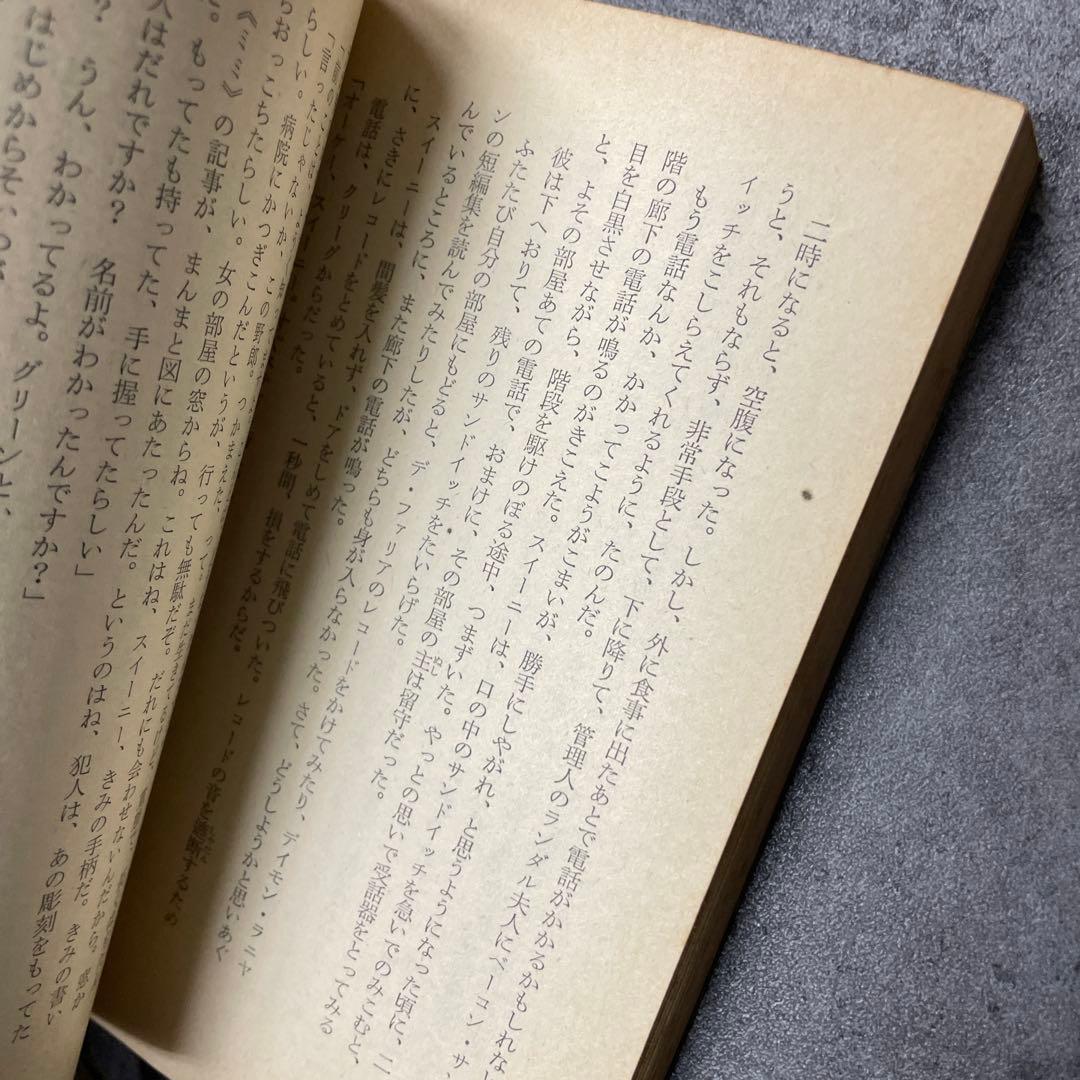 二時になると、空腹になった。しかし、外に食事に出たあとで電話がかかるかもしれな
うと、それもならず、非常手段として、下に降りて、管理人のランダル夫人にベーコン・サ
イッチをこしらえてくれるように、たのんだ。
もう電話なんか、かかってこようがこまいが、勝手にしやがれ、と思うようになった頃に、二
階の廊下の電話が鳴るのがきこえた。スイーニーは、口の中のサンドイッチを急いでのみこむと、
目を白黒させながら、階段を駆けのぼる途中、つまずいた。やっとの思いで受話器をとってみる
と、よその部屋あての電話で、おまけに、その部屋の主は留守だった。
彼は下へおりて、残りのサンドイッチをたいらげた。
ふたたび自分の部屋にもどると、デ・ファリアのレコードをかけてみたり、デイモン・ラニヤ
ンの短編集を読んでみたりしたが、どちらも身が入らなかった。さて、どうしようかと思いあぐ
んでいるところに、また廊下の電話が鳴った。
スイーニーは、間髪を入れず、ドアをしめて電話に飛びついた。レコードの音を遮断するため
に、さきにレコードをとめていると、一秒間、損をするからだ。
電話は、クリーグからだった。
「オーケー、スイーニー
「言ったじゃないか、この野郎。つかまえた
らしい。病院にかつぎこんだというが、行っても無駄だぞ。だれにも会わせないんだから。窓か
らおっこちたらしい。女の部屋の窓からね。これはね、スイーニー、きみの手柄だ。きみの書い
《ミミ》の記事が、まんまと図にあたったんだ。というのはね、犯人は、あの彫刻をもってた
。もってたも持ってた、手に握ってたらしい」
人はだれですか？　名前がわかったんですか？」
？　うん、わかってるよ。グリーンと、
はじめからそ